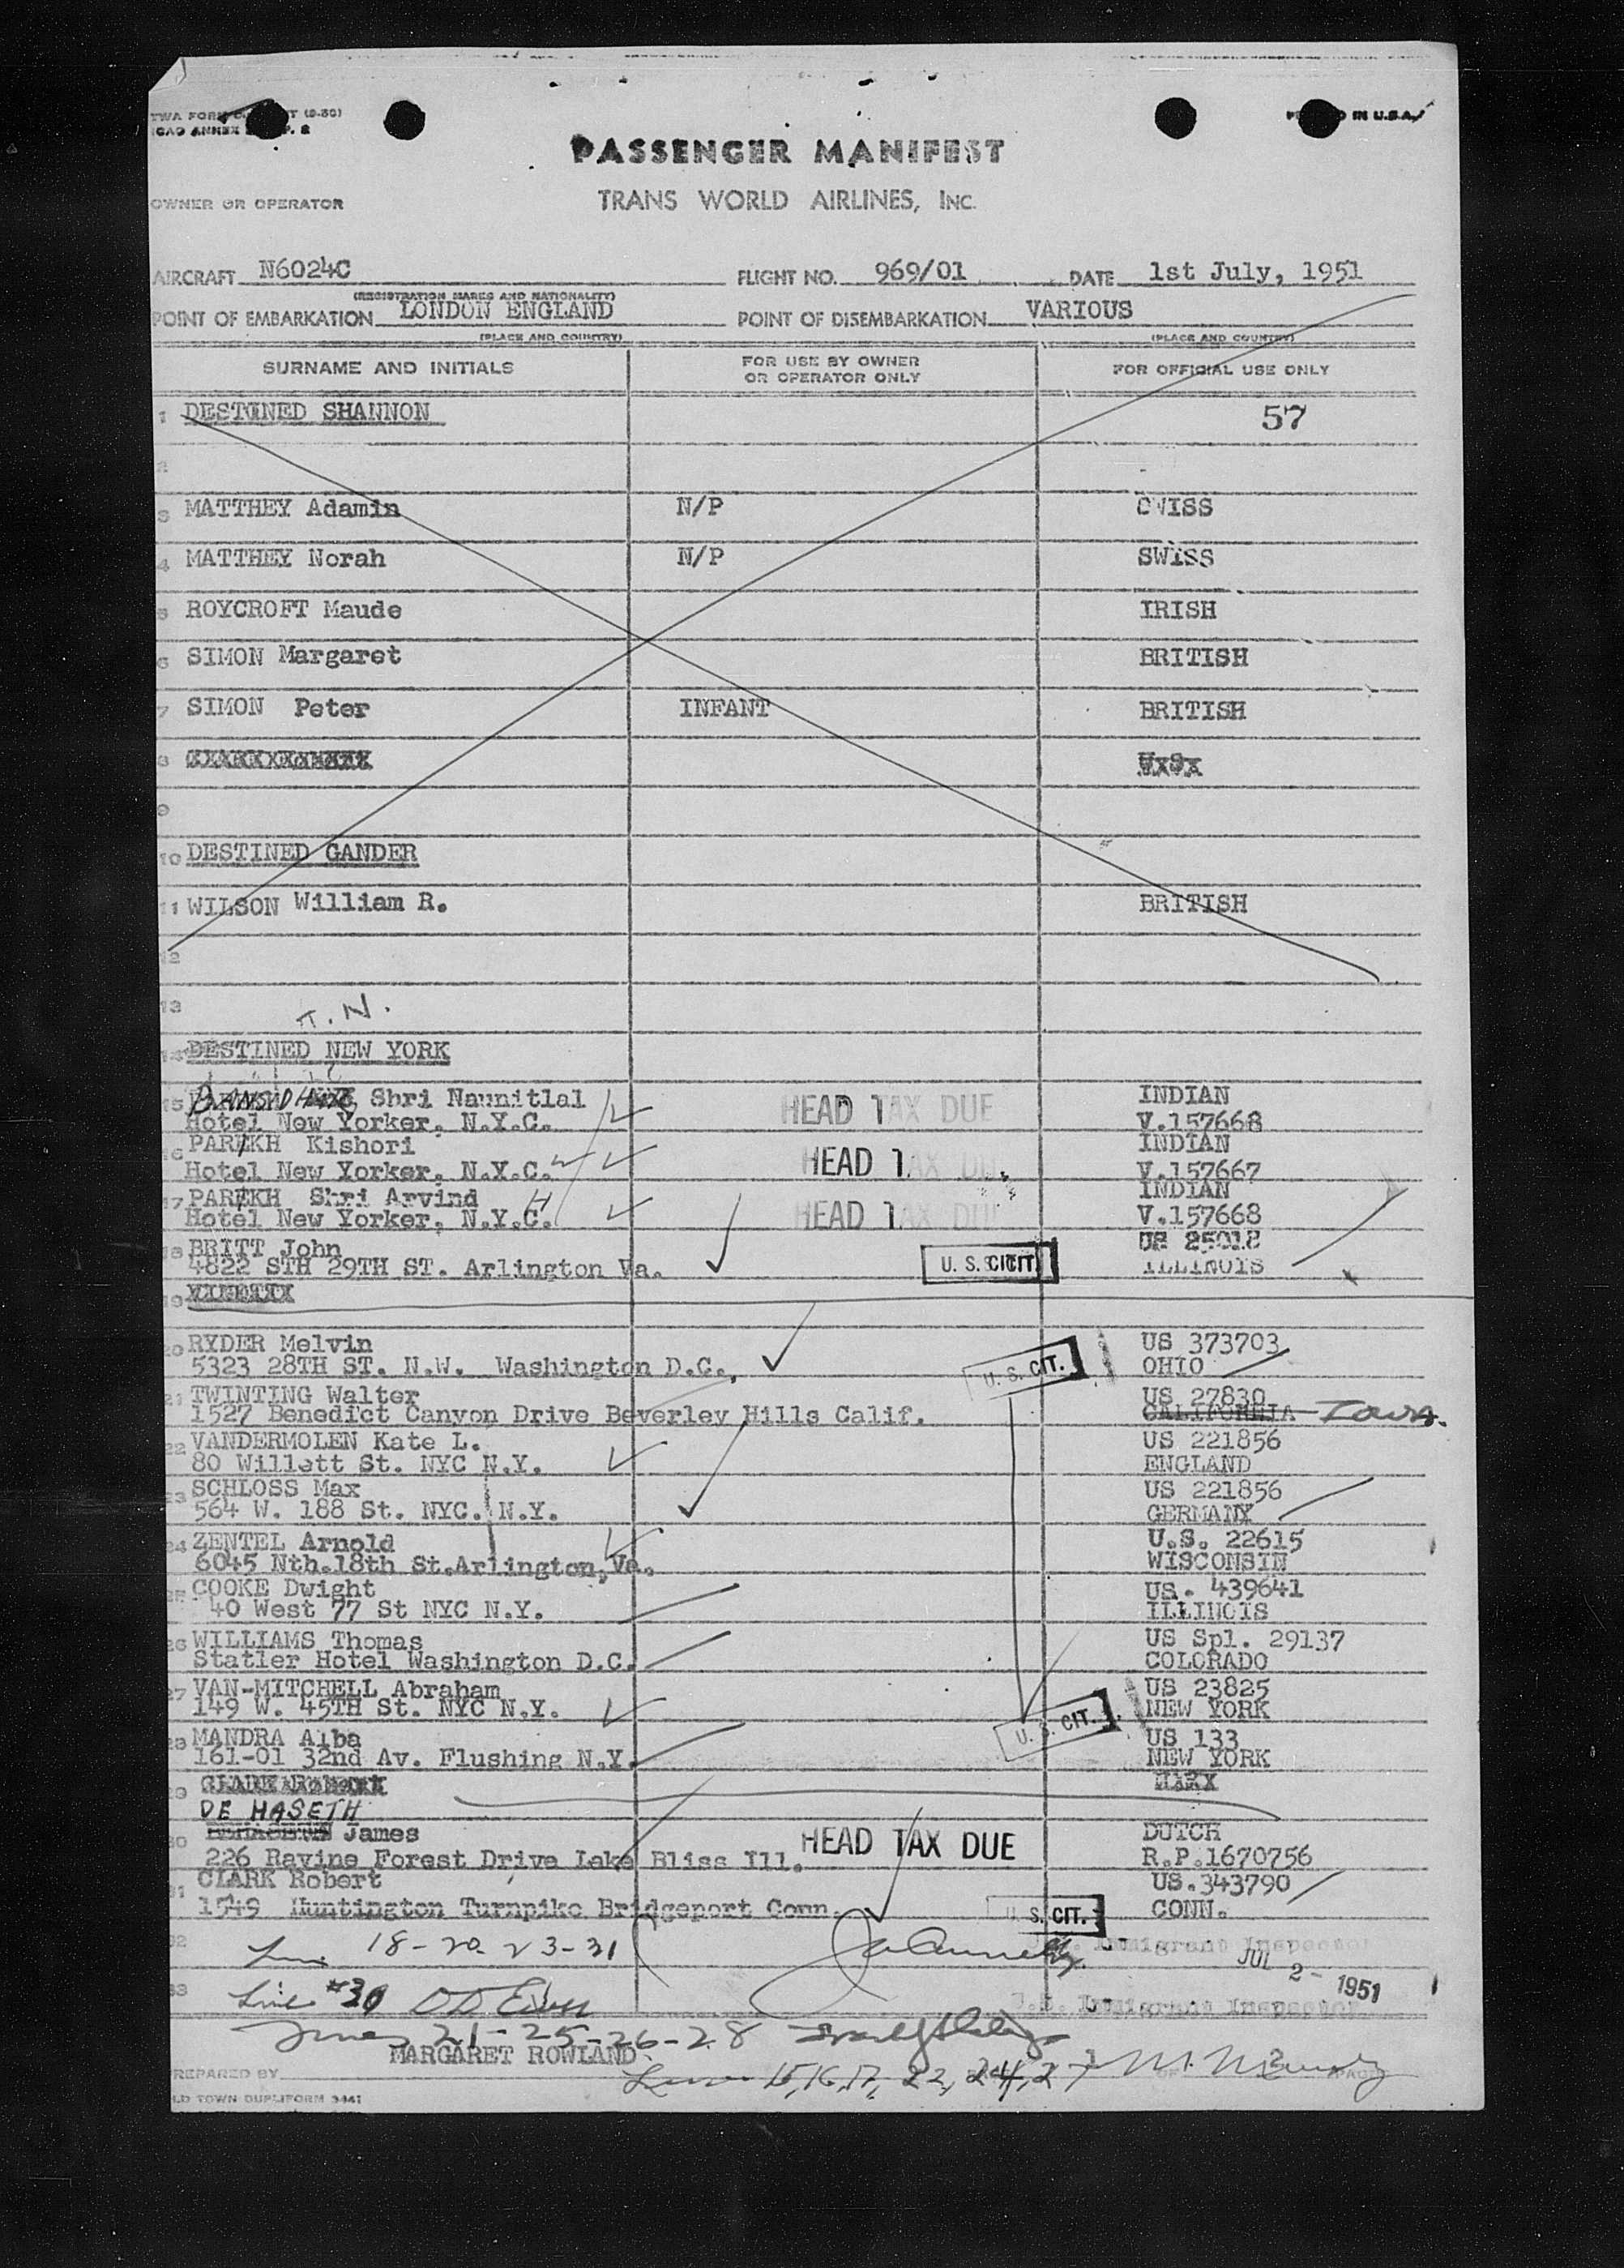 PRINTED IN U.S.A.
PASSENGER MANIFEST
OWNER OR OPERATOR TRANS WORLD AIRLINES, INC.
AIRCRAFT N6024C FLIGHT NO. 969/01 DATE 1st July, 1951
(REGISTRATION MARKS AND NATIONALITY)
POINT OF EMBARKATION LONDON ENGLAND POINT OF DISEMBARKATION VARIOUS
(PLACE AND COUNTRY) (PLACE AND COUNTRY)
SURNAME AND INITIALS FOR USE BY OWNER OR OPERATOR ONLY FOR OFFICIAL USE ONLY
1 DESTINED SHANNON 57
2
3 MATTHEY Adamin N/P SWISS
4 MATTHEY Norah N/P SWISS
5 ROYCROFT Maude IRISH
6 SIMON Margaret BRITISH
7 SIMON Peter INFANT BRITISH
8
9
10 DESTINED GANDER
11 WILSON William R. BRITISH
12
13
T.N.
14 DESTINED NEW YORK
15 BANSIDHAR Shri Naunitlal HEAD TAX DUE INDIAN
Hotel New Yorker, N.Y.C. V.157668
16 PARIKH Kishori HEAD TAX DUE INDIAN
Hotel New Yorker, N.Y.C. V.157667
17 PARIKH Shri Arvind H HEAD TAX DUE INDIAN
Hotel New Yorker, N.Y.C. V.157668
18 BRITT John U. S. CIT. US 25012
4822 STH 29TH ST. Arlington Va. ILLINOIS
19
20 RYDER Melvin U. S. CIT. US 373703
5323 28TH ST. N.W. Washington D.C. OHIO
21 TWINTING Walter US 27830
1527 Benedict Canyon Drive Beverley Hills Calif. CALIFORNIA Iowa.
22 VANDERMOLEN Kate L. US 221856
80 Willett St. NYC N.Y. ENGLAND
23 SCHLOSS Max US 221856
564 W. 188 St. NYC. N.Y. GERMANY
24 ZENTEL Arnold U.S. 22615
6045 Nth.18th St.Arlington, Va. WISCONSIN
25 COOKE Dwight US. 439641
40 West 77 St NYC N.Y. ILLINOIS
26 WILLIAMS Thomas US Spl. 29137
Statler Hotel Washington D.C. COLORADO
27 VAN-MITCHELL Abraham US 23825
149 W. 45TH St. NYC N.Y. U. S. CIT. NEW YORK
28 MANDRA Alba US 133
161-01 32nd Av. Flushing N.Y. NEW YORK
29 CLARK Robert
DE HASETH
30 James HEAD TAX DUE DUTCH
226 Ravine Forest Drive Lake Bliss Ill. R.P.1670756
31 CLARK Robert US.343790
1549 Huntington Turnpike Bridgeport Conn. U. S. CIT. CONN.
32 18-20-23-31 U.S. Immigrant Inspector
JUL 2 - 1951
33 Line #30 U.S. Immigrant Inspector
Lines 21-25-26-28
MARGARET ROWLAND
PREPARED BY Lines 15,16,17, 22, 24, 27
OLD TOWN DUPLIFORM 3441